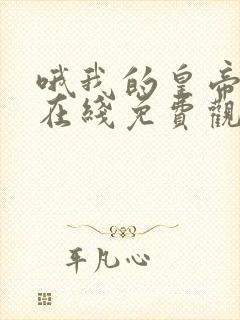 哦我的皇帝
在綫免費觀
平凡心